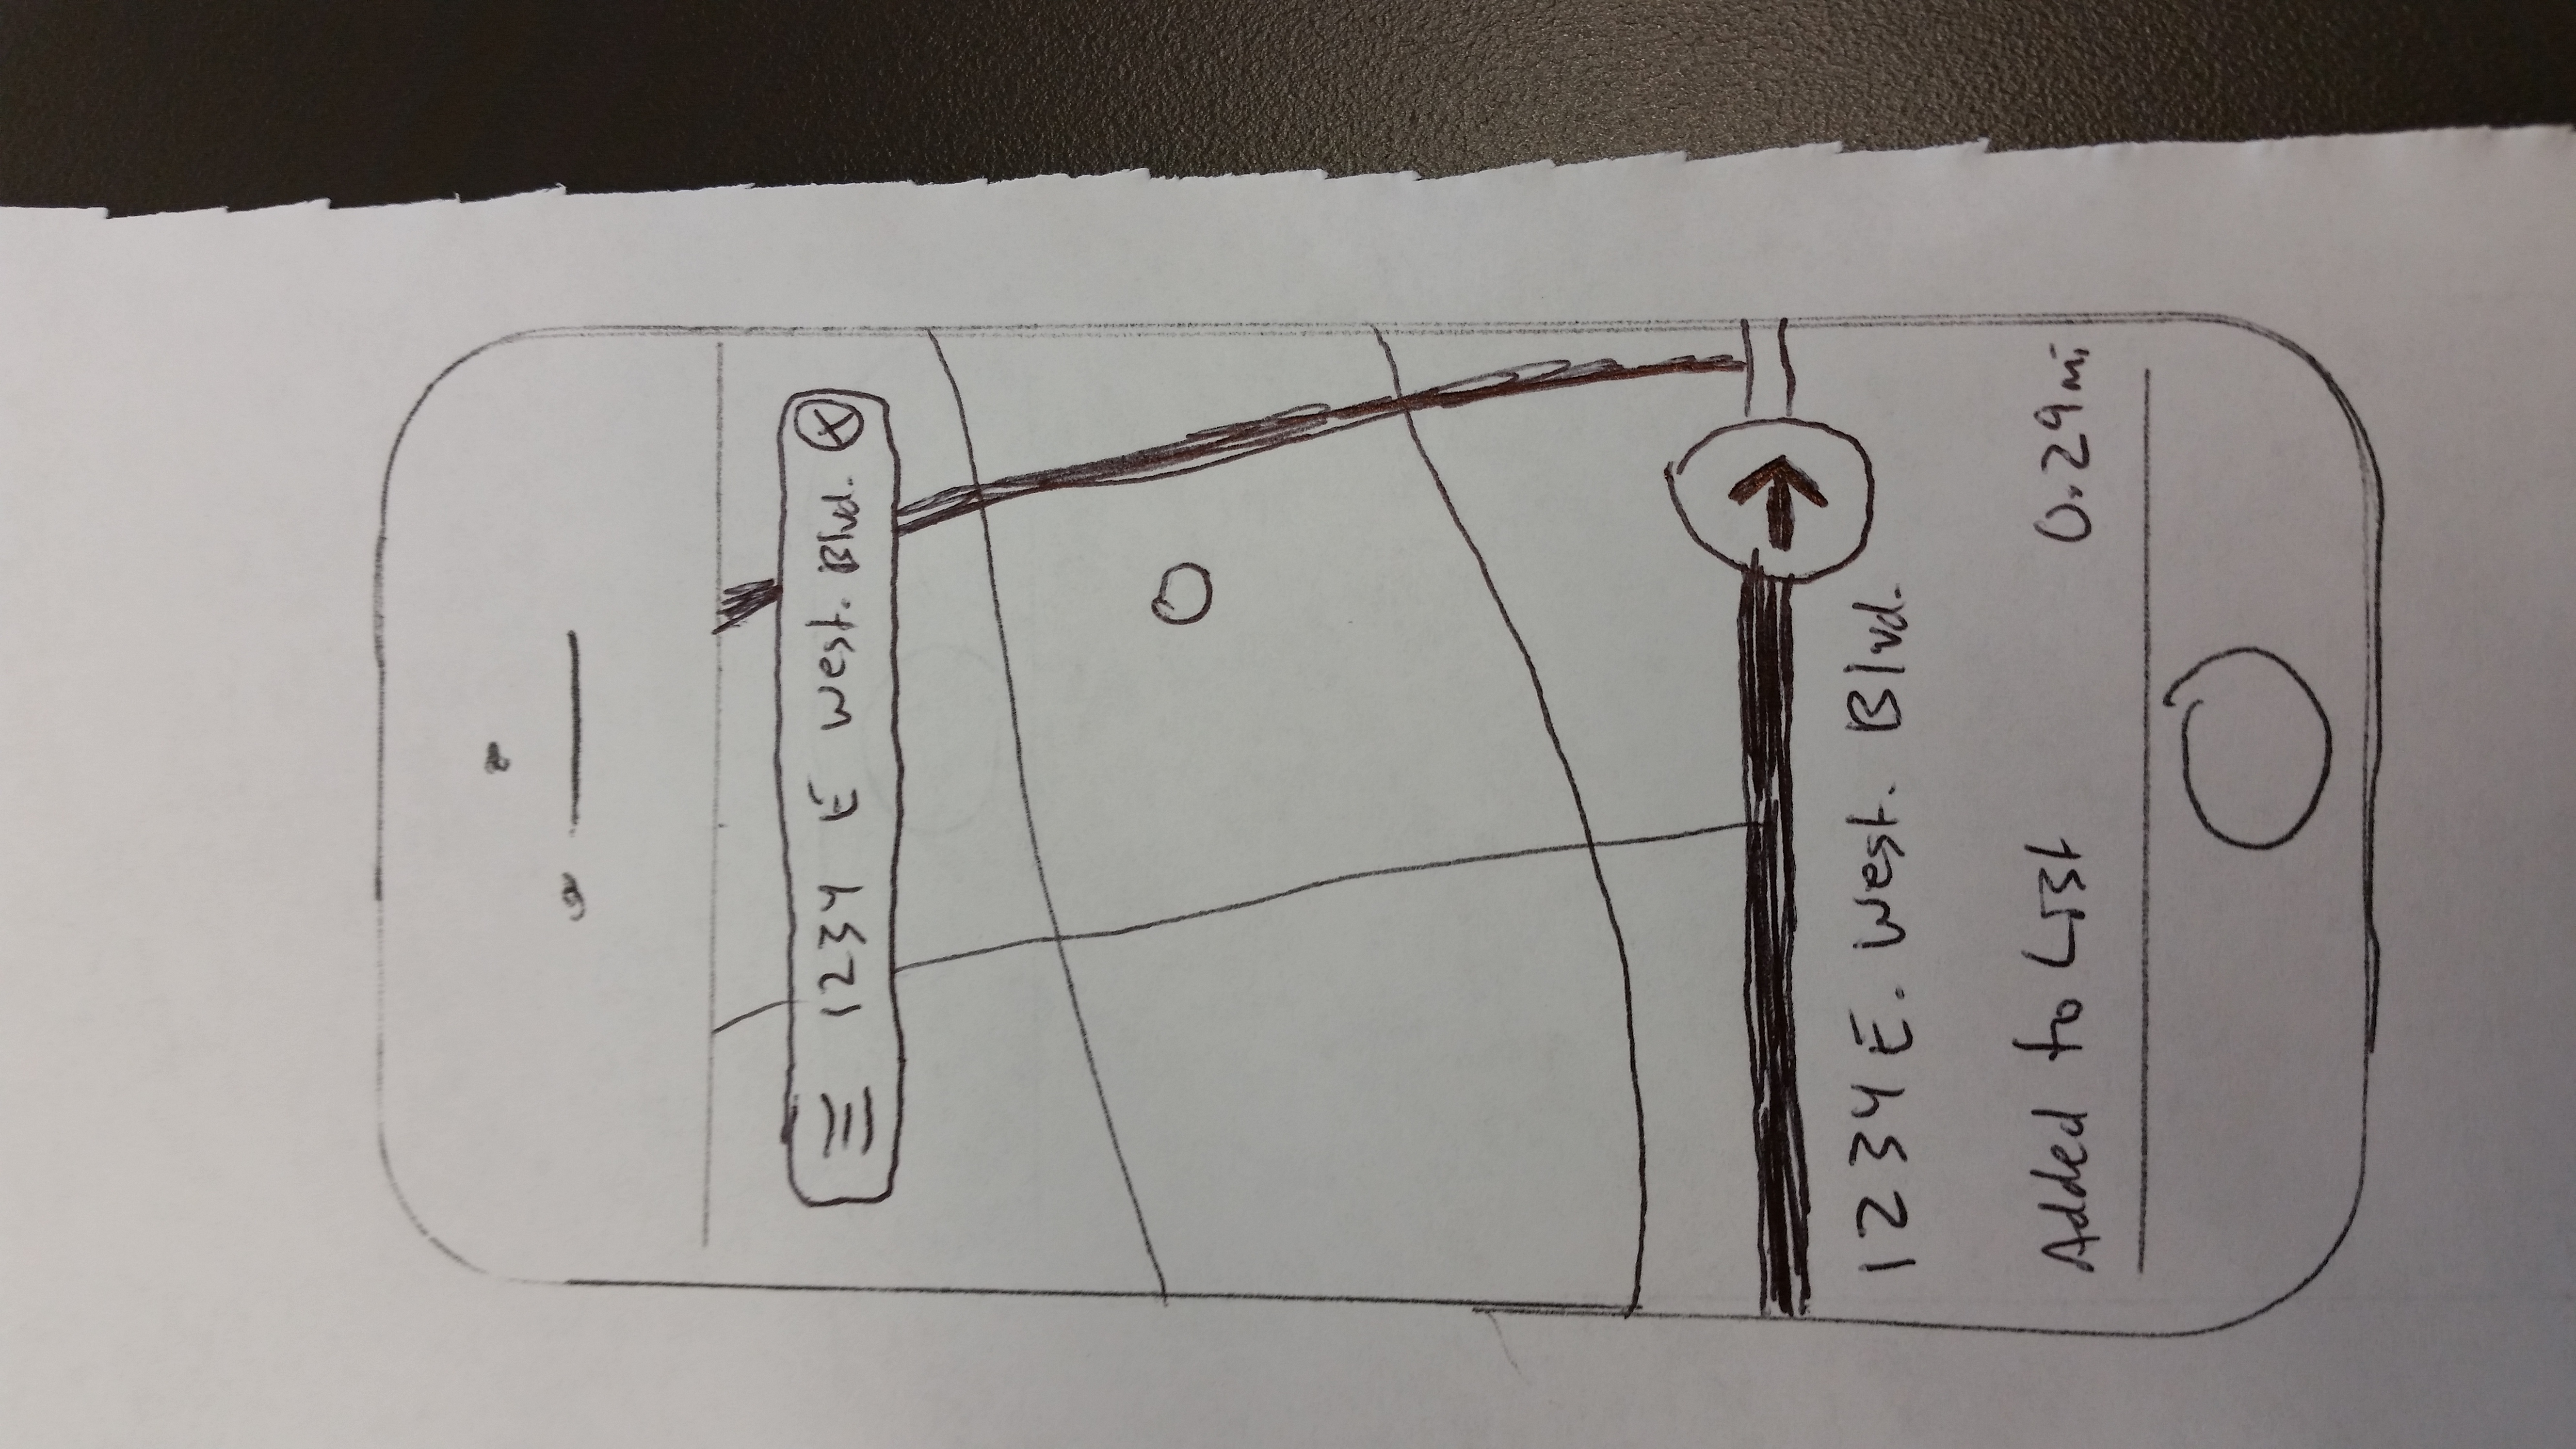 1234 E West. Blvd.
1234 E. West. Blvd.
Added to List 0.29mi